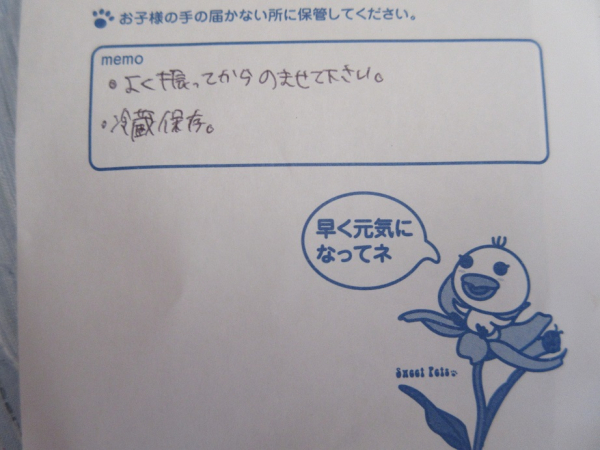 お子様の手の届かない所に保管してください。
memo
・よく振ってからのませて下さい。
・冷蔵保存。
早く元気に
なってネ
Sweet Pets